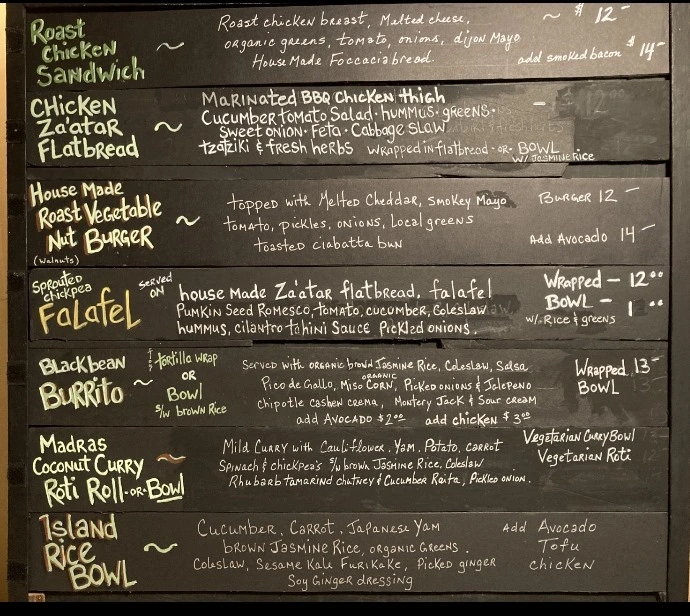 Roast Chicken Sandwich ~ Roast chicken breast, Melted cheese, ~ $12-
organic greens, tomato, onions, dijon Mayo
House Made Foccacia bread. add smoked bacon $14-
Chicken Za'atar Flatbread ~ Marinated BBQ Chicken thigh
Cucumber tomato Salad · hummus · greens ·
Sweet onion · Feta · Cabbage slaw
tzatziki & fresh herbs wrapped in flatbread -or- BOWL
w/ Jasmine Rice
House Made Roast Vegetable Nut Burger (walnuts) ~ topped with Melted Cheddar, smokey Mayo Burger 12-
tomato, pickles, onions, Local greens
toasted ciabatta bun Add Avocado 14-
Sprouted chickpea Falafel served on house Made Za'atar flatbread, falafel Wrapped - 12.00
Pumkin Seed Romesco, tomato, cucumber, Coleslaw BOWL -
hummus, cilantro tahini Sauce Pickled onions. w/- Rice & greens
Black bean Burrito ~ tortilla wrap or Bowl s/w brown Rice
Served with organic brown Jasmine Rice, Coleslaw, Salsa Wrapped 13-
Pico de Gallo, Miso organic Corn, Picked onions & Jelepeno BOWL
chipotle cashew crema, Montery Jack & Sour cream
add Avocado $2.00 add chicken $3.00
Madras Coconut Curry Roti Roll -or- Bowl ~ Mild Curry with Cauliflower, Yam, Potato, carrot Vegetarian Curry Bowl
Spinach & chickpea's s/w brown Jasmine Rice, Coleslaw Vegetarian Roti
Rhubarb tamarind chutney & Cucumber Raita, Pickled onion.
Island Rice Bowl ~ Cucumber, Carrot, Japanese Yam Add Avocado
brown Jasmine Rice, organic Greens. Tofu
Coleslaw, Sesame Kale Furikake, Picked ginger chicken
Soy Ginger dressing